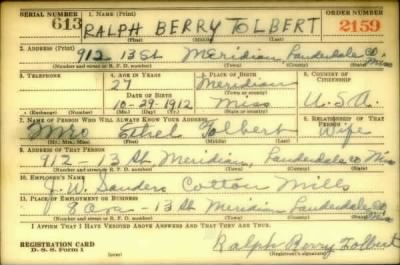 SERIAL NUMBER 1. NAME (Print) ORDER NUMBER
613 RALPH BERRY TOLBERT 2159
(First) (Middle) (Last)
2. ADDRESS (Print)
912 13 St Meridian, Lauderdale Co. Miss
(Number and street or R. F. D. number) (Town) (County) (State)
3. TELEPHONE 4. AGE IN YEARS 5. PLACE OF BIRTH 6. COUNTRY OF CITIZENSHIP
27 Meridian
DATE OF BIRTH (Town or county)
10-29-1912 Miss U.S.A.
(Exchange) (Number) (Mo.) (Day) (Yr.) (State or country)
7. NAME OF PERSON WHO WILL ALWAYS KNOW YOUR ADDRESS 8. RELATIONSHIP OF THAT PERSON
Mrs Ethel Tolbert Wife
(Mr., Mrs., Miss) (First) (Middle) (Last)
9. ADDRESS OF THAT PERSON
912 - 13 St. Meridian, Lauderdale Co Miss
(Number and street or R. F. D. number) (Town) (County) (State)
10. EMPLOYER'S NAME
J. W. Sanders Cotton Mills
11. PLACE OF EMPLOYMENT OR BUSINESS
13 St Meridian Lauderdale Co. Miss
(Number and street or R. F. D. number) (Town) (County) (State)
I AFFIRM THAT I HAVE VERIFIED ABOVE ANSWERS AND THAT THEY ARE TRUE.
REGISTRATION CARD
D. S. S. FORM 1 Ralph Berry Tolbert
(over) (Registrant's signature)